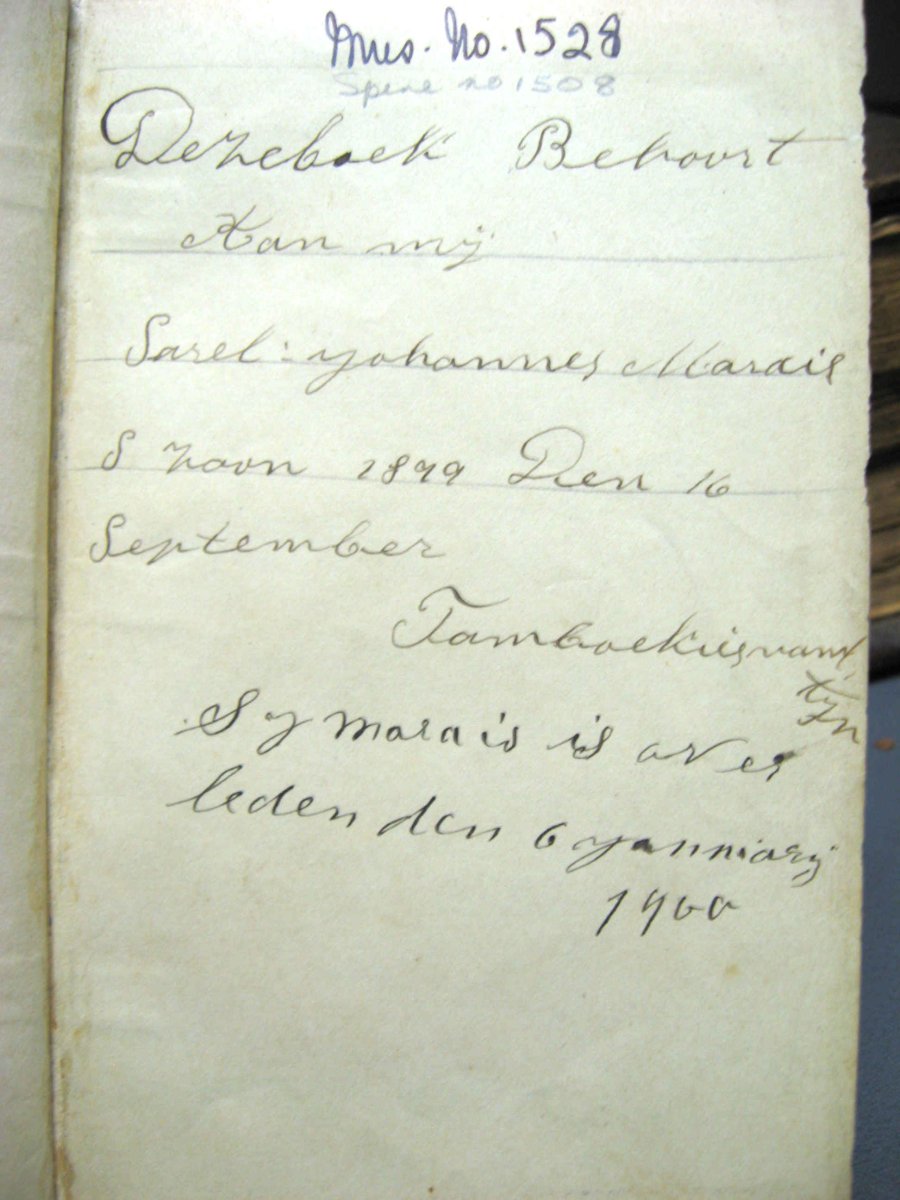 Mus. No. 1528
Spine no 1508
Dezeboek Behoort
Aan mij
Sarel : yohannes Marais
S zoon 1899 Den 16
September
S y marais is over
leden den 6 yannuarij
1900